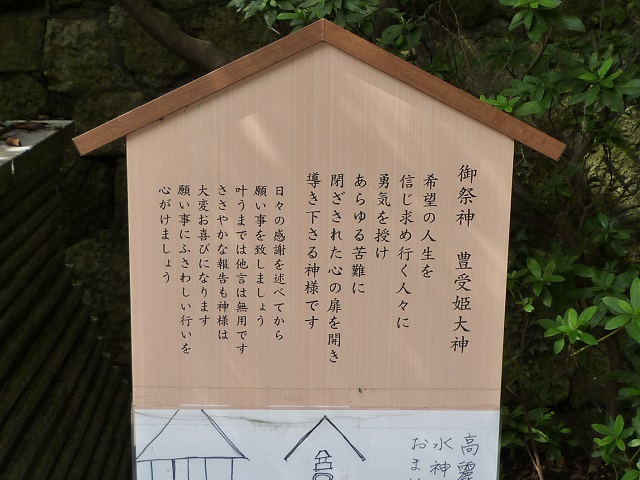 御祭神　豊受姫大神
希望の人生を
信じ求め行く人々に
勇気を授け
あらゆる苦難に
閉ざされた心の扉を開き
導き下さる神様です
日々の感謝を述べてから
願い事を致しましょう
叶うまでは他言は無用です
ささやかな報告も神様は
大変お喜びになります
願い事にふさわしい行いを
心がけましょう
高麗
水神
おま